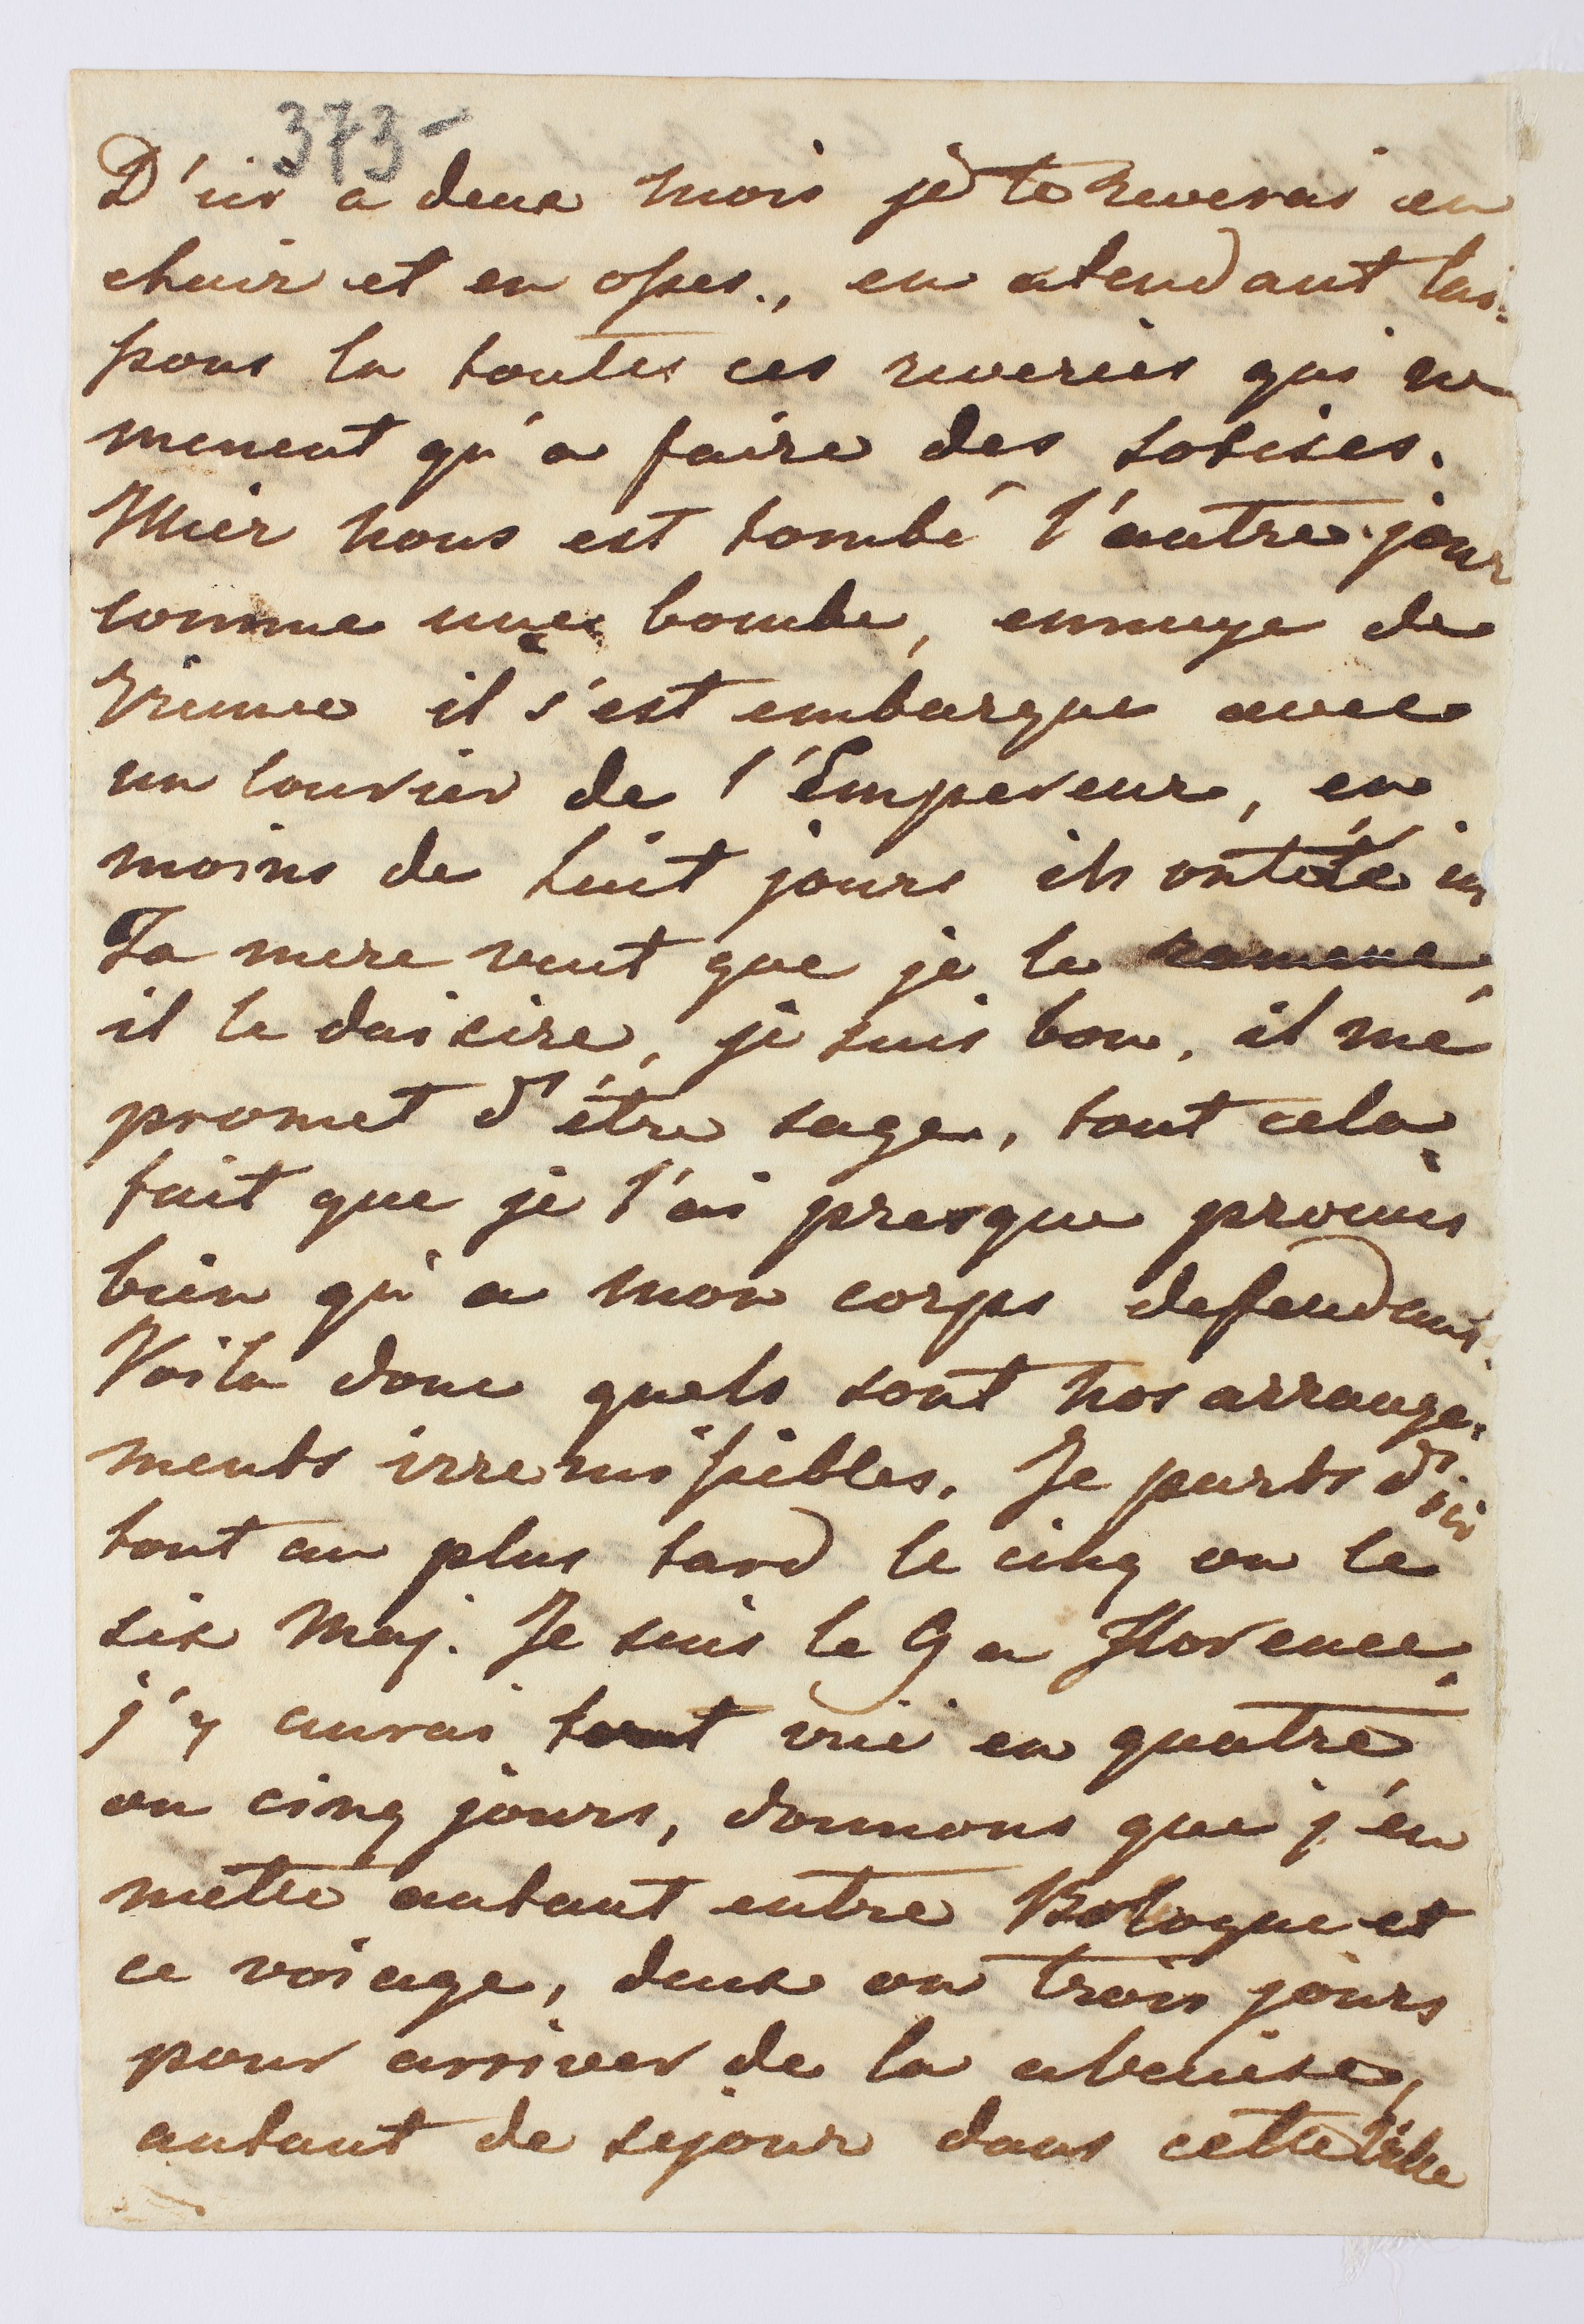 373-
D'ici a deux mois je te reverai en
chair et en osses., en atendant lais-
sons la toutes ces reveries qui ne
menent qu'a faire des sotises.
Mier nous est tombé l'autre jour
comme une bombe, ennuye de
Vienne il s'est embarque avec
un courier de l'Empereur, en
moins de huit jours ils ont été ici
Ta mere veut que je le ramene,
il le daisire, je suis bon, il me
promet d'être sage, tout cela
fait que je l'ai presque promis
bien qu'a mon corps defendant.
Voila donc quels sont nos arrange-
ments irremissibles. Je parts d'ici
tout au plus tard le cinq ou le
six Maj. Je suis le 9 a Florence,
j'y aurai tout vue en quatre
ou cinq jours, donnons que j'en
mette autant entre Bologne et
ce voiage, deux ou trois jours
pour arriver de la a Venise,
autant de sejour dans cette ville